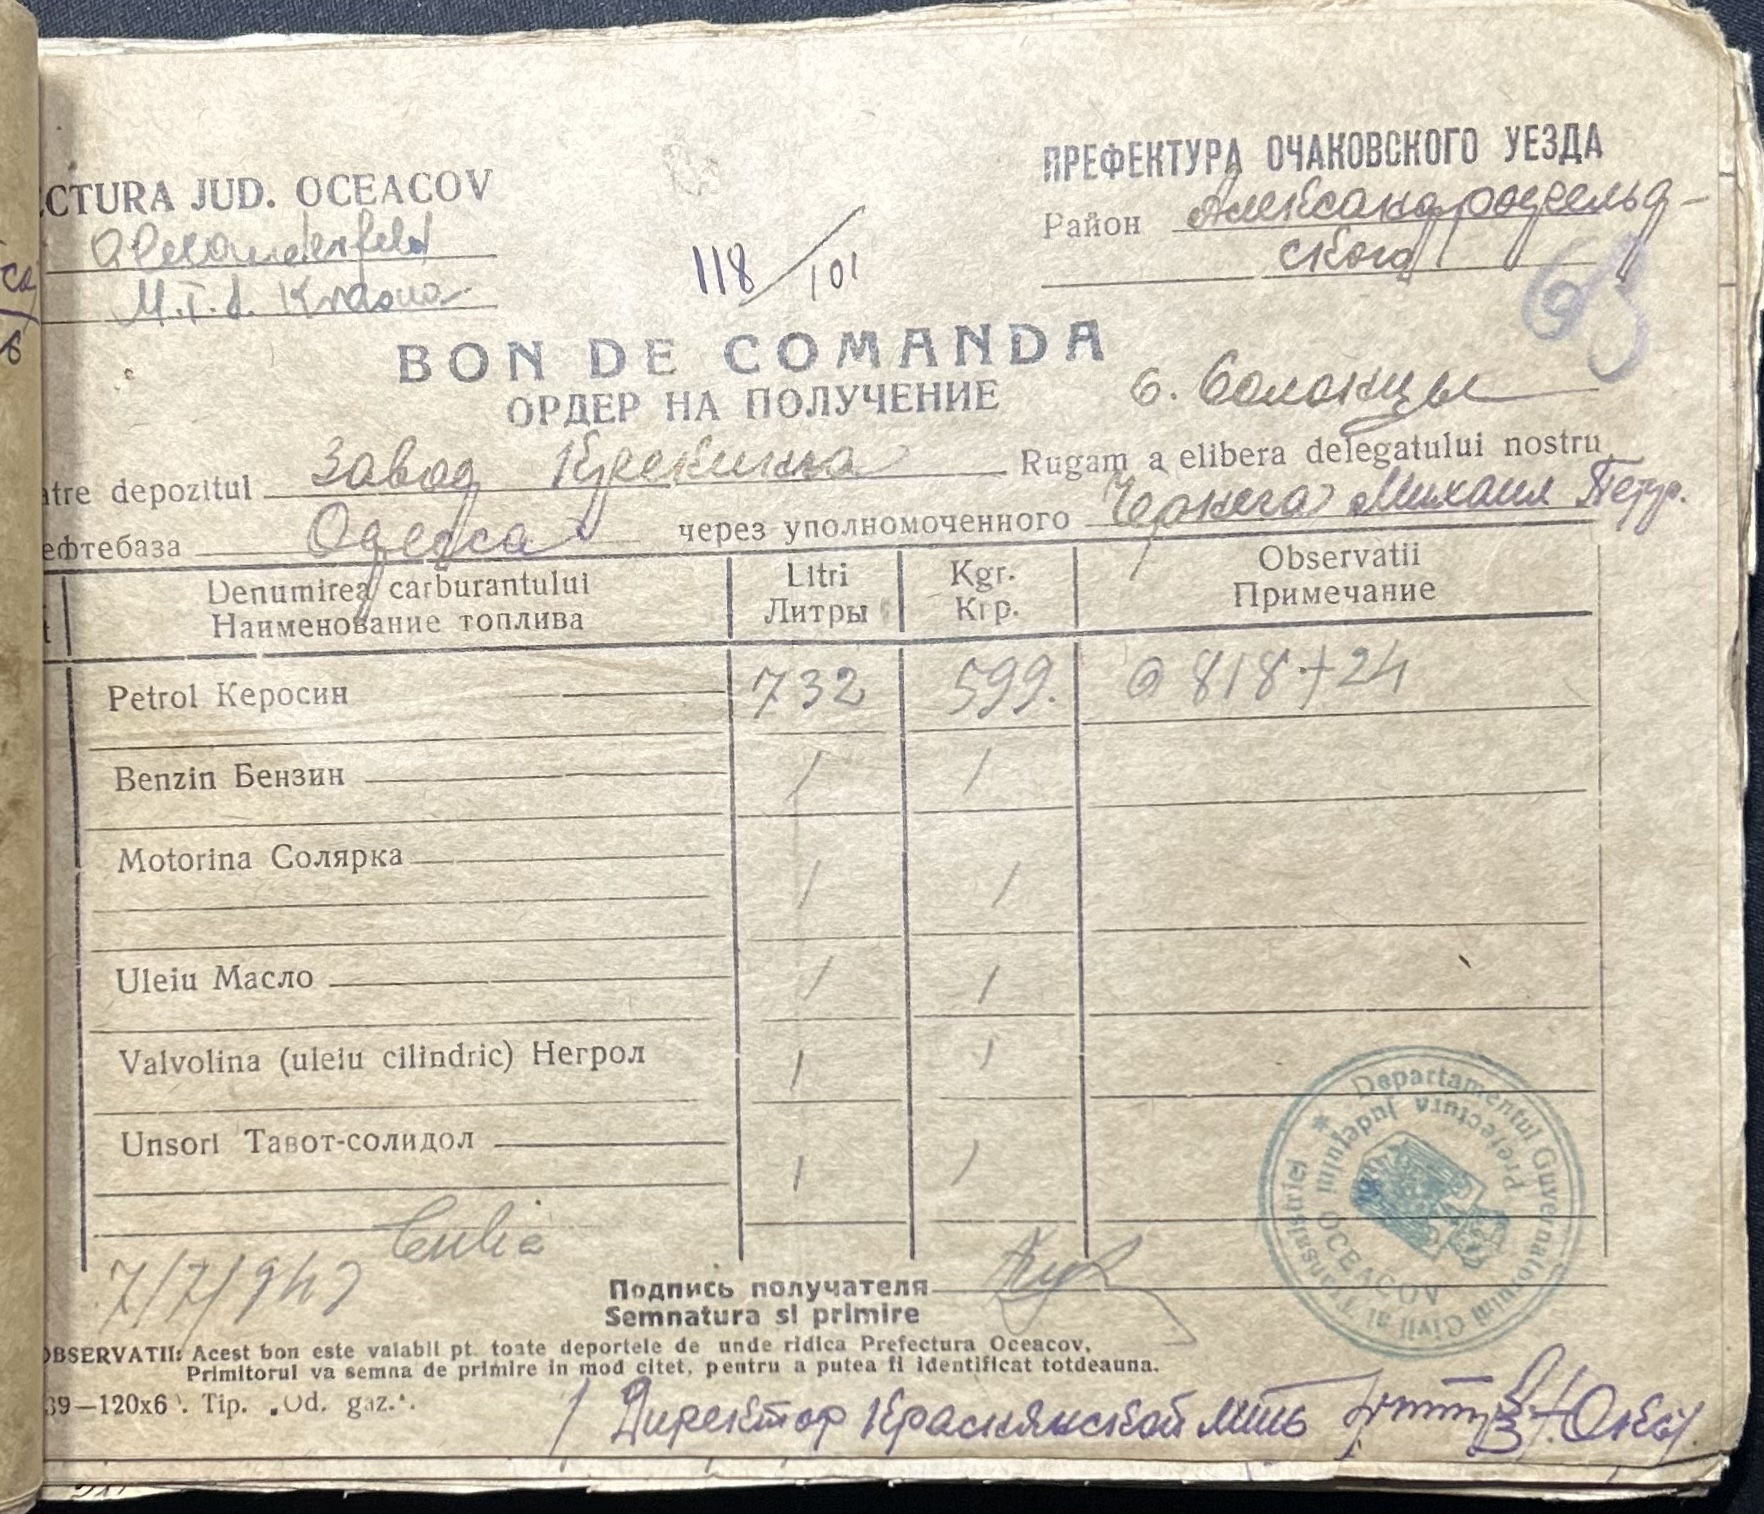 ECTURA JUD. OCEACOV
Alexanderfeld
M.T.S. Krasna
118/101
ПРЕФЕКТУРА ОЧАКОВСКОГО УЕЗДА
Район Александрфельд-
ского
63
BON DE COMANDA
ОРДЕР НА ПОЛУЧЕНИЕ
с. Солонцы
atre depozitul Завод Крекинга Rugam a elibera delegatului nostru
ефтебаза Одесса через уполномоченного Чернега Михаил Петр.
Denumirea carburantului Litri Kgr. Observatii
Наименование топлива Литры Кгр. Примечание
Petrol Керосин 732 599. 818 + 24
Benzin Бензин / /
Motorina Солярка / /
Uleiu Масло / /
Valvolina (uleiu cilindric) Негрол / /
Unsori Тавот-солидол / /
7/7/943
Подпись получателя
Semnatura si primire
OBSERVATII: Acest bon este valabil pt. toate deportele de unde ridica Prefectura Oceacov.
Primitorul va semna de primire in mod citet, pentru a putea fi identificat totdeauna.
39—120x6 . Tip. „Od. gaz.".
Директор Краснянской мтс
Departamentul Guvernatorului Civil al Transnistriei *
Prefectura Judeţului OCEACOV